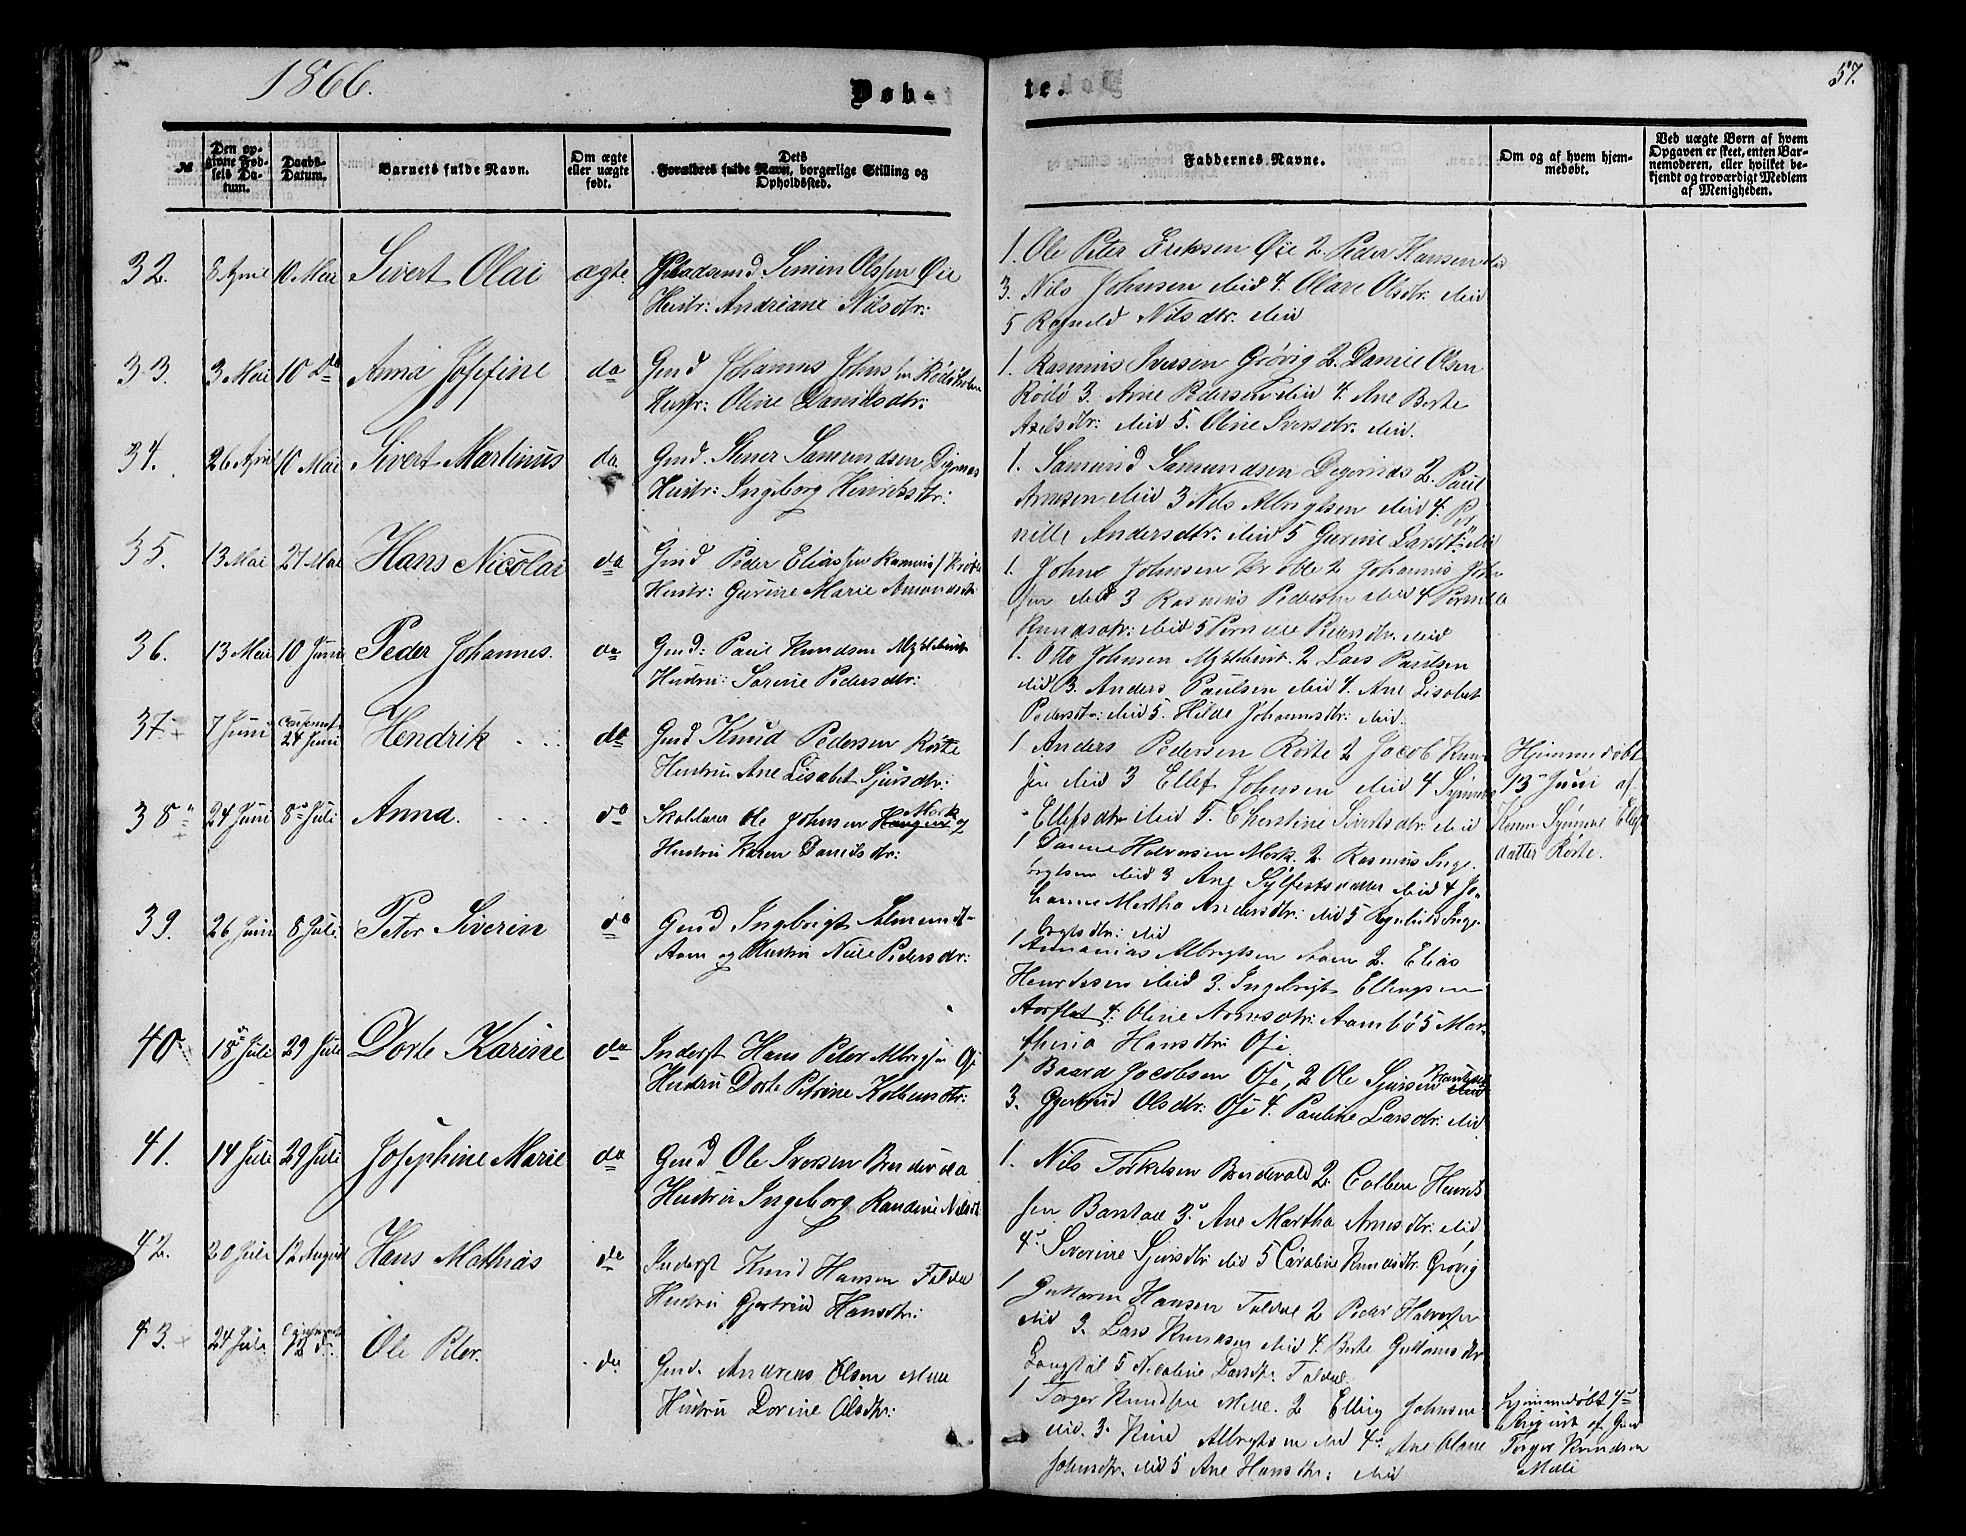 1866.
Døb-
te.
57.
№
Den op-
givne Fød-
sels Da-
tum.
Daabs-
Datum.
Barnets fulde Navn.
Om ægte
eller uægte
født.
Dets
Forældres fulde Navn, borgerlige Stilling og
Opholdssted.
Faddernes Navne.
Om og af hvem hjem-
medøbt.
Ved uægte Børn af hvem
Opgaven er skeet, enten Bar-
nemoderen, eller hvilket be-
kjendt og troværdigt Medlem
af Menigheden.
32. 8 April 10 Mai Sivert Olai ægte Simen Olssen Øie
Hustr: Andriane Nilsdtr:
1. Ole Peter Eriksen Øie 2 Peder Hansen
3. Nils Johnsen ibid 4. Olave Olsdtr. ibid
5 Nilsdtr. ibid
33. 3 Mai 10 do Anna Josefine do Gmd Johannes Johnssen
Hustr: Oline Danielsdtr:
1. Rasmus Iversen Grøvig 2. Daniel Olsen
Rødø 3. Arne Pedersen ibid 4. Ane Berte
ibid 5. Oline Iversdtr. ibid.
34. 26 April 10 Mai Sivert Martinus do Gmd. Stener Samundsen
Hustr: Ingeborg Henriksdtr:
1. Samund Samundsen Degernes 2. Paul
Arnesen ibid 3 Nils Albrigtsen ibid 4. Per
nille Andersdtr. ibid 5 Gurine Larsdtr. ibid
35. 13 Mai 27 Mai Hans Nicolai do Gmd Peder Eliassen
Hustr: Gurine Marie Amundsdtr
1. John Johnsen 2 Johannes John
sen ibid 3 Rasmus Pedersen ibid 4 Pernille
Knudsdtr: ibid 5 Pernille Pedersdtr. ibid
36. 13 Mai 10 Juni Peder Johannes. do Gmd: Paul Knudsen Myklebust
Hustru: Sorine Pedersdtr:
1. Otto Johnsen Myklebust. 2 Lars Paulsen
ibid 3. Anders Paulsen ibid 4. Ane Lisabet
Pedersdtr: ibid 5. Hilde Johannesdtr: ibid.
37. 7 Juni 24 Juni Hendrik do Gmd Knud Pedersen Røste
Hustru Ane Lisabet Sjursdtr:
1 Anders Pedersen Røste 2 Jacob Knud
sen ibid 3 Ellef Johnsen ibid 4 Synneve
Ellefsdtr ibid 5. Cherstine Sivertsdtr. ibid
Hjemmedøbt
13 Juni af
Karen Synneve Ellefs
datter Røste.
38 24 Juni 8 Juli Anna. do Skolelærer Ole Johnsen Haugen Mork og
Hustru Karen Danielsdtr:
1 Daniel Halvorsen Mork. 2. Rasmus Inge
brigtsen ibid 3 Ane Sylfestsdatter ibid 4 Jo
hanne Martha Andersdtr: ibid 5 Inge
brigtsdtr: ibid
39. 26 Juni 8 Juli Peter Siverin do Gmd Ingebrigt
Aam og Hustru Pedersdtr:
1 Albrigtsen Aam 2. Elias
Henriksen ibid 3. Ingebrigt Ellingsen
Aasflot 4. Oline Arnesdtr: 5 Mar
thina Hansdtr: Ose
40 18 Juli 29 Juli Dorte Karine do Inderst Hans Peter Albrigtsen Ose
Hustru Dorte Petrine
1 Baard Jacobsen Ose, 2 Ole Sjursen ibid
3. Gjertrud Olsdtr: Ose 4. Pauline Larsdtr: ibid
41. 14 Juli 29 Juli Josephine Marie do Gmd Ole Iversen
Hustru Ingeborg Randine Nilsdt
1. Nils Torkelsen 2. Colben Henrik
sen 3. Ane Martha Arnesdtr: ibid
4. Severine Sjursdtr ibid 5 Caroline Knudsdtr. Grøvig
42. 20 Juli 12 August Hans Mathias do Inderst Knud Hansen Foldal
Hustru Gjertrud Hansdtr:
1 Guttorm Hansen Foldal 2 Peder Halvorsen
ibid 3. Lars Knudsen ibid 4. Berte Guttormsdtr
5 Nicoline Larsdtr. Foldal.
43. 24 Juli 12 do Ole Peter. do Gmd. Andreas Olsen Melle
Hustru Dorine Olsdtr:
1 Torger Knudsen Melle. 2 Elling Johnsen
ibid. 3. Knud Albrigtsen ibid 4. Ane Olave
Johnsdtr. ibid 5 Ane Hansdtr: ibid
Hjemmedøbt 4
August af Gmd
Torger Knudsen
Melle